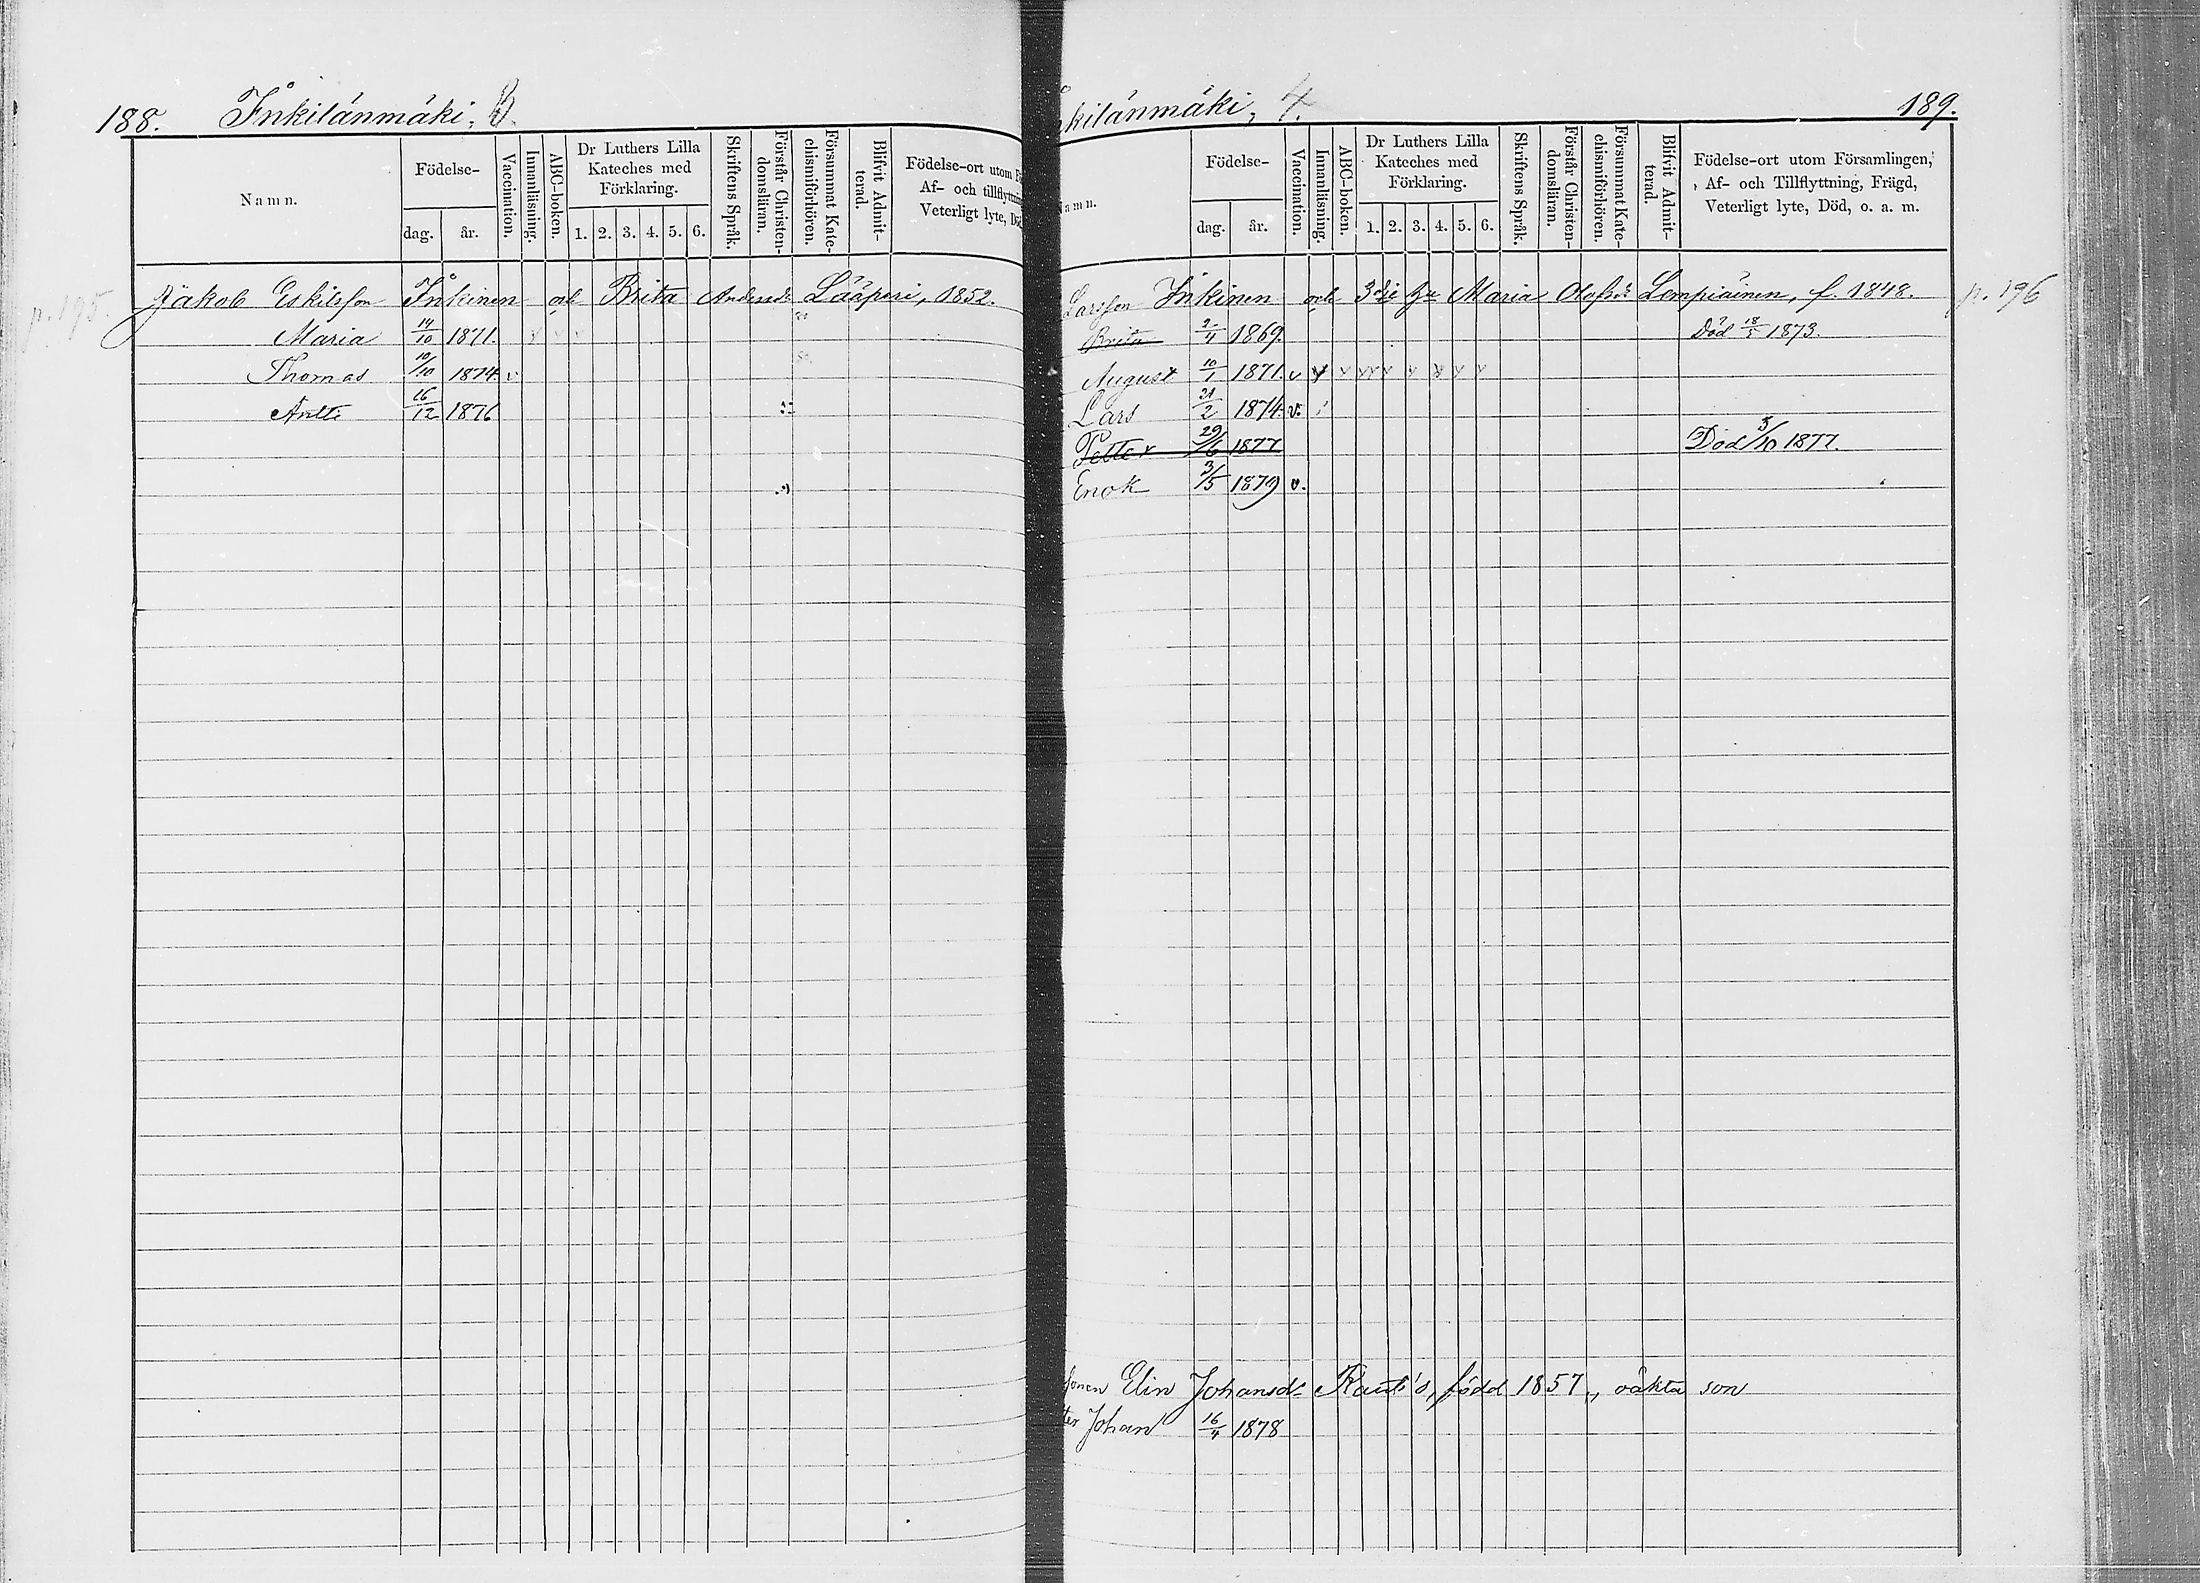 188. Inkilänmäki, 3.
Namn.
Födelse-
dag.
år.
Vaccination.
Innanläsning.
ABC-boken.
Dr Luthers Lilla
Kateches med
Förklaring.
1. 2. 3. 4. 5. 6.
Skriftens Språk.
Förstår Christen-
domsläran.
Försummat Kate-
chismiförhören.
Blifvit Admit-
terad.
Födelse-ort utom
Af- och tillflyttning
Veterligt lyte, Död
p. 195. Jakob Eskilsson Inkinen och Brita Andersd:r Lääperi, 1852.
Maria 14/10 1871.
Thomas 10/10 1874. v
Antti 16/12 1876
kilänmäki, 4. 189.
Namn.
Födelse-
dag.
år.
Vaccination.
Innanläsning.
ABC-boken.
Dr Luthers Lilla
Kateches med
Förklaring.
1. 2. 3. 4. 5. 6.
Skriftens Språk.
Förstår Christen-
domsläran.
Försummat Kate-
chismiförhören.
Blifvit Admit-
terad.
Födelse-ort utom Församlingen,
Af- och Tillflyttning, Frägd,
Veterligt lyte, Död, o. a. m.
Larsson Inkinen och 3dje Maria Olofsd:r Lempiäinen, f. 1848. p. 196
Brita 2/4 1869. Död 18/5 1873.
August 10/1 1871. v
Lars 21/2 1874. v.
Petter 29/6 1877 Död 5/10 1877.
Enok 3/5 1879 v.
Elin Johansd:r född 1857, oäkta son
ter Johan 16/4 1878